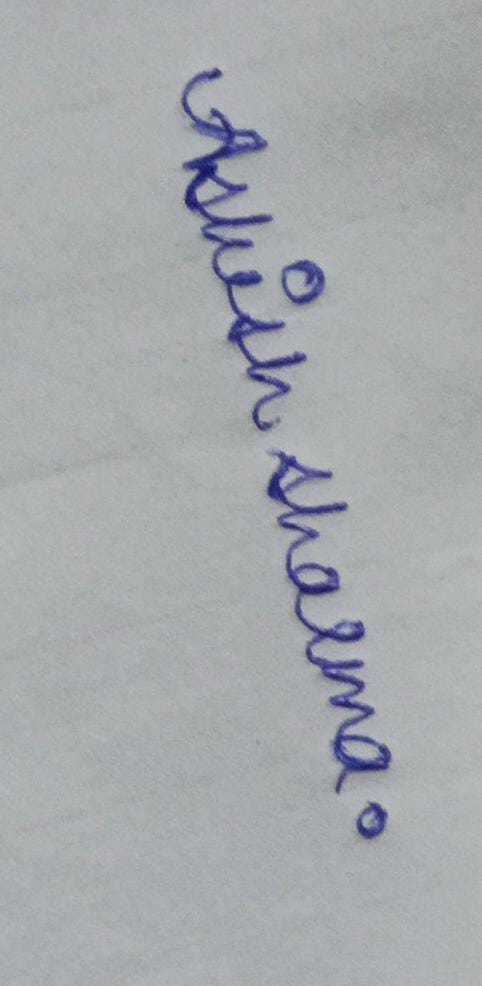 Ashish sharma.